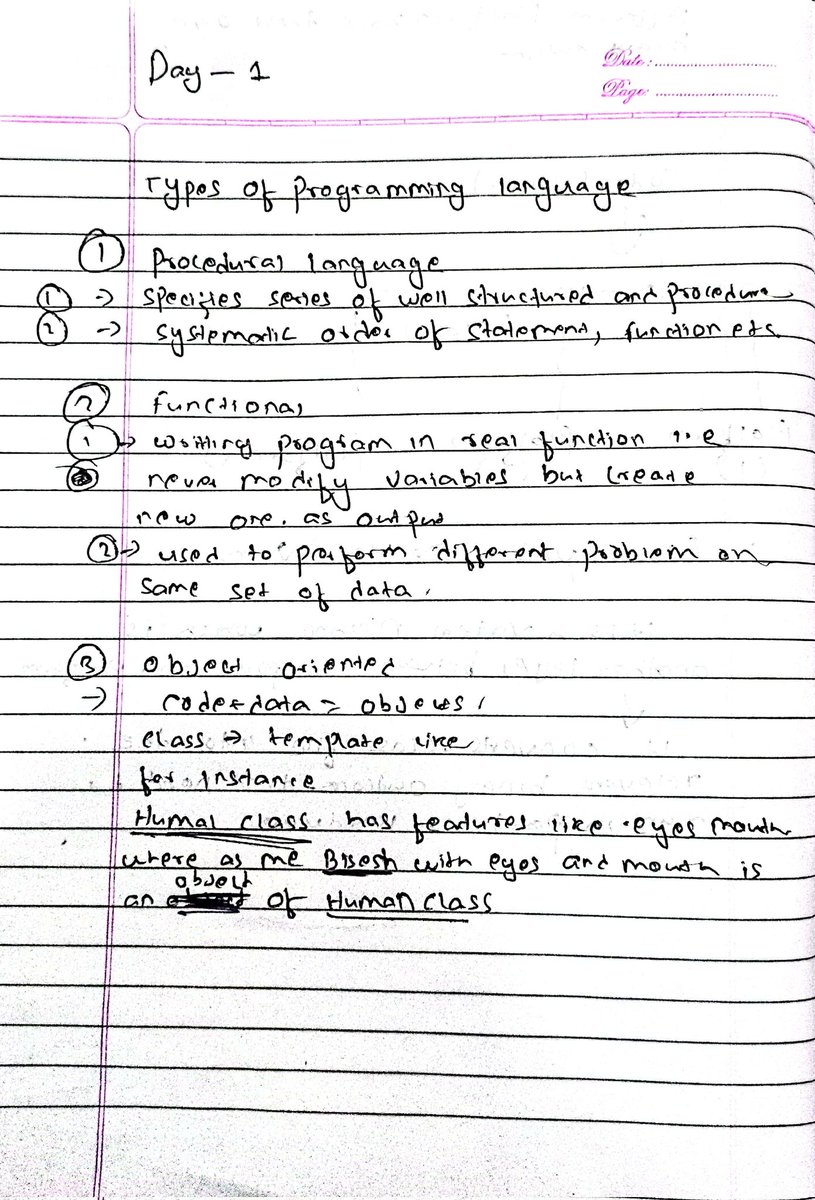 Day - 1
Date:
Page:
Types of programming language
① Procedural language
① → specifies series of well structured and procedure
② → systematic order of statement, function etc
② functional
① → writting program in real function i.e
never modify variables but create
new one. as output
② → used to perform different problem on
same set of data.
③ object oriented
→ code + data = objects,
class → template like
for instance
Humal class has features like eyes mouth
where as me Bisesh with eyes and mouth is
an object of Human class